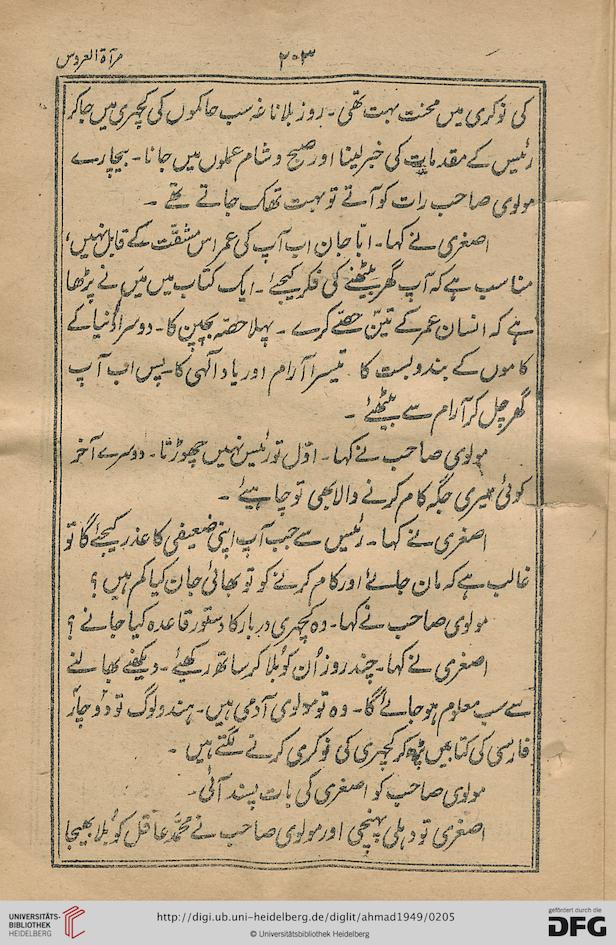 مرآۃ العروس
۲۰۳
کی نوکری میں محنت بہت تھی۔ روز بلاناغہ سب حاکموں کی کچہری میں جاکر
رئیس کے مقدمات کی خبر لینا اور صبح و شام عملوں میں جانا۔ بیچارے
مولوی صاحب رات کو آتے تو بہت تھک جاتے تھے۔
اصغری نے کہا۔ ابّا جان اب آپ کی عمر اس مشقّت کے قابل نہیں،
مناسب ہے کہ آپ گھر بیٹھنے کی فکر کیجئے۔ ایک کتاب میں میں نے پڑھا
ہے کہ انسان عمر کے تین حصّے کرے۔ پہلا حصّہ بچپن کا۔ دوسرا دُنیا کے
کاموں کے بندوبست کا۔ تیسرا آرام اور یادِ الٰہی کا۔ پس اب آپ
گھر چل کر آرام سے بیٹھئے۔
مولوی صاحب نے کہا۔ اوّل تو رئیس نہیں چھوڑتا۔ دوسرے آخر
کوئی میری جگہ کام کرنے والا بھی تو چاہیئے۔
اصغری نے کہا۔ رئیس سے جب آپ اپنی ضعیفی کا عذر کیجئے گا تو
غالب ہے کہ مان جائے اور کام کرنے کو تو بھائی جان کیا کم ہیں؟
مولوی صاحب نے کہا۔ وہ کچہری دربار کا دستور قاعدہ کیا جانے؟
اصغری نے کہا۔ چند روز اُن کو بُلا کر ساتھ رکھیئے۔ دیکھنے بھالنے
سے سب معلوم ہو جائے گا۔ وہ تو مولوی آدمی ہیں۔ ہندو لوگ تو دو چار
فارسی کی کتابیں پڑھ کر کچہری کی نوکری کرنے لگتے ہیں۔
مولوی صاحب کو اصغری کی بات پسند آئی۔
اصغری تو دہلی پہنچی اور مولوی صاحب نے محمّد عاقل کو بُلا بھیجا
UNIVERSITÄTS-
BIBLIOTHEK
HEIDELBERG
http://digi.ub.uni-heidelberg.de/diglit/ahmad1949/0205
© Universitätsbibliothek Heidelberg
gefördert durch die
DFG